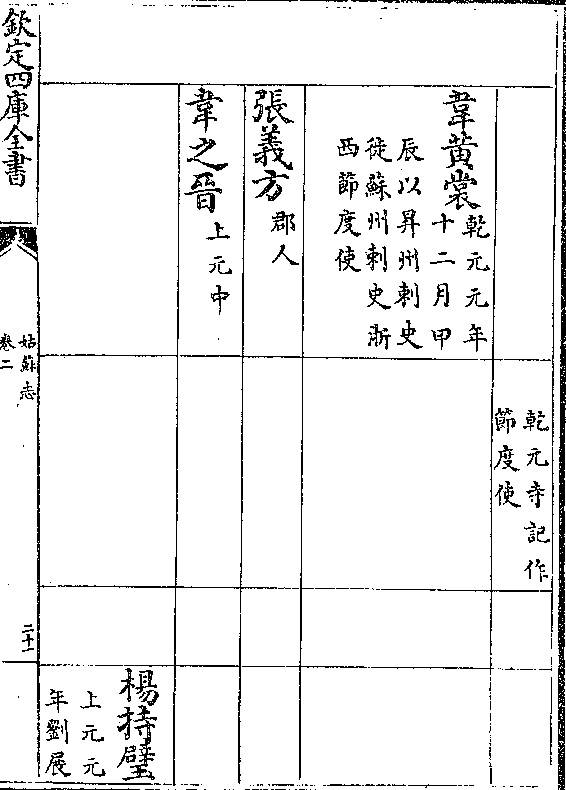 乾元寺記作
節度使
韋黄裳
乾元元年
十二月甲
辰以昇州刺史
徙蘇州刺史浙
西節度使
張義方
郡人
韋之晉
上元中
楊持璧
上元元
年劉展
欽定四庫全書
姑蘇志
卷二
二十一